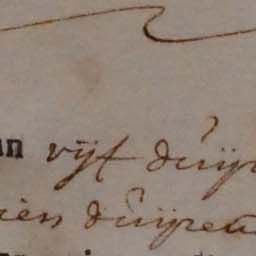 an vijf duij
ien duijren